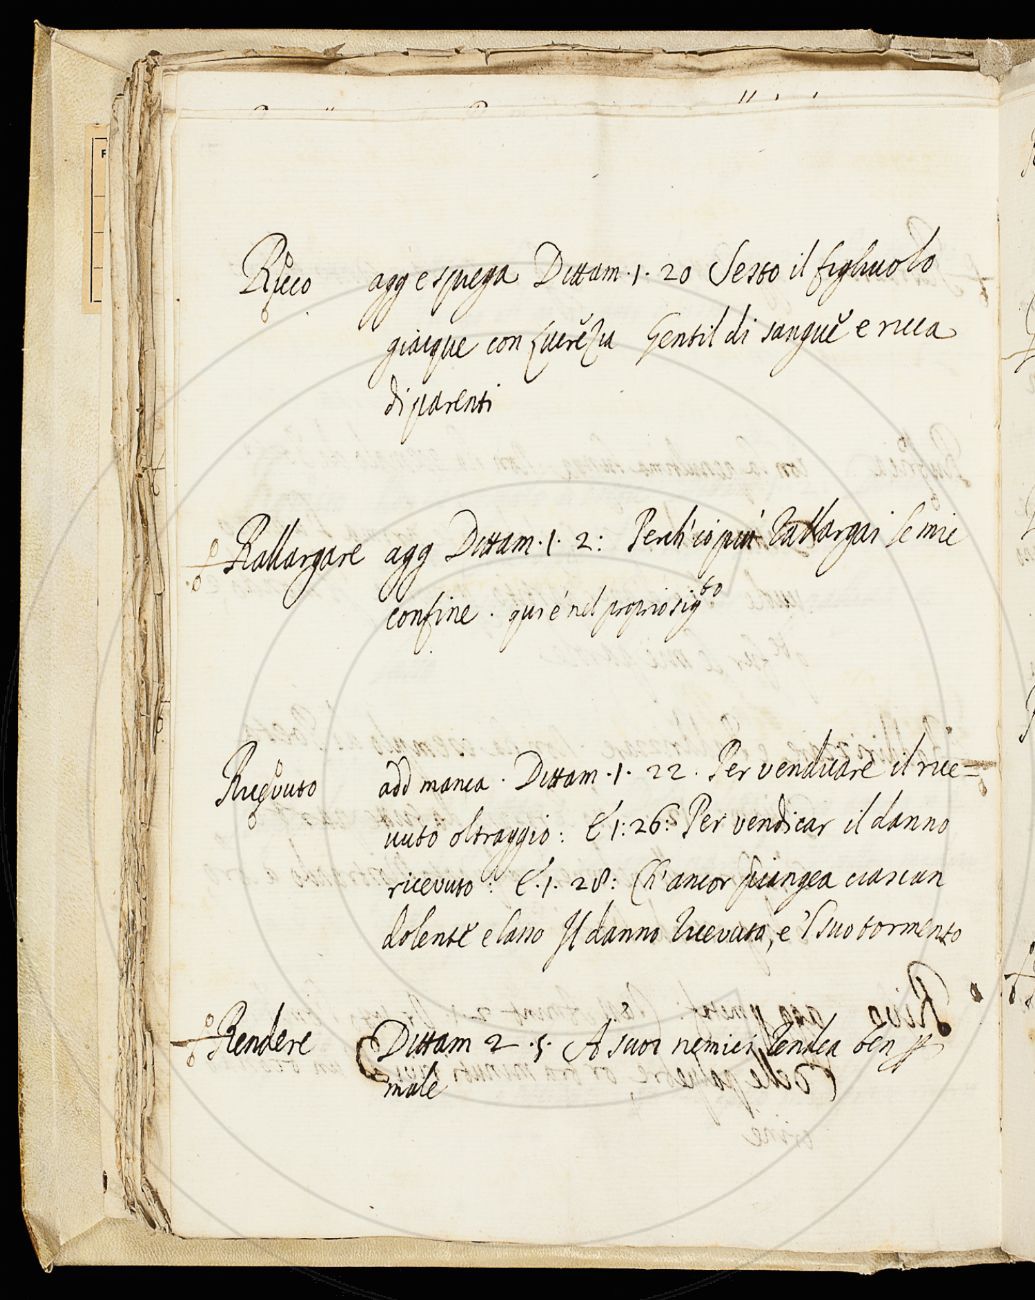 Ricco agg e spiega Dittam. 1. 20 Sesto il figliuolo
giacque con Lucrezia Gentil di sangue e ricca
di parenti
Rallargare agg Dittam. 1. 2: Perch' io più rallargai le mie
confine. qui é nel proprio sig.to
Ricevuto add manca. Dittam. 1. 22. Per vendicare il rice=
vuto oltraggio: E 1: 26: Per vendicar il danno
ricevuto: E. 1. 28: Ch' ancor piangea ciascun
dolente e lasso Il danno ricevuto, e 'l suo tormento
Rendere Dittam 2. 5. A suoi nemici rendea ben p
male